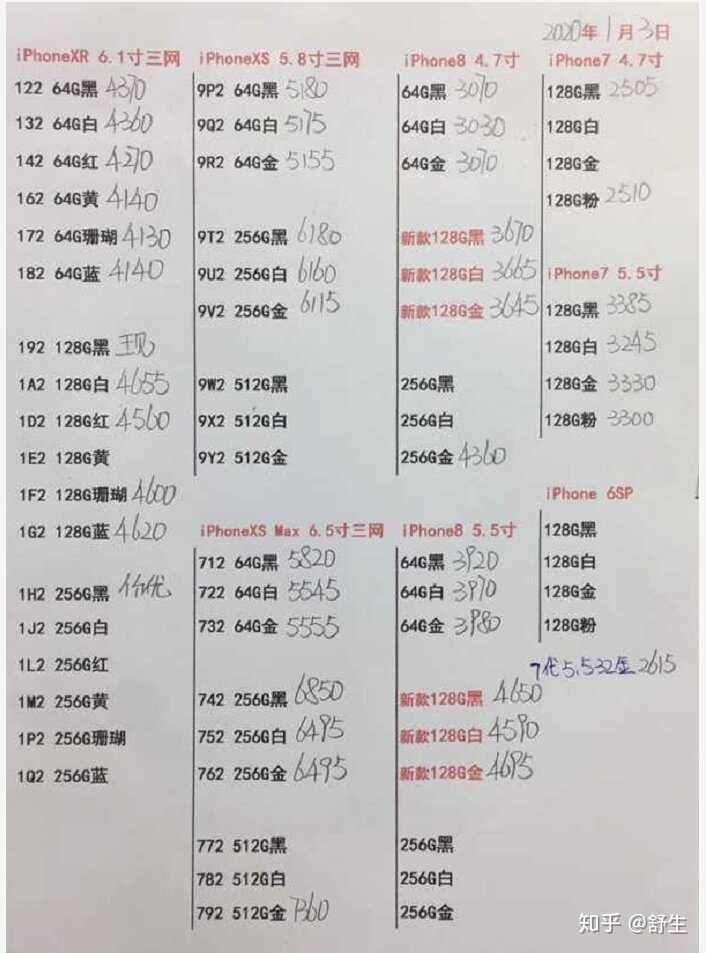 2020年1月3日
iPhoneXR 6.1寸三网
122 64G黑 4370
132 64G白 4360
142 64G红 4270
162 64G黄 4140
172 64G珊瑚 4130
182 64G蓝 4140
192 128G黑 现
1A2 128G白 4655
1D2 128G红 4560
1E2 128G黄
1F2 128G珊瑚 4600
1G2 128G蓝 4620
1H2 256G黑 优
1J2 256G白
1L2 256G红
1M2 256G黄
1P2 256G珊瑚
1Q2 256G蓝
iPhoneXS 5.8寸三网
9P2 64G黑 5180
9Q2 64G白 5175
9R2 64G金 5155
9T2 256G黑 6180
9U2 256G白 6160
9V2 256G金 6115
9W2 512G黑
9X2 512G白
9Y2 512G金
iPhoneXS Max 6.5寸三网
712 64G黑 5820
722 64G白 5545
732 64G金 5555
742 256G黑 6850
752 256G白 6495
762 256G金 6495
772 512G黑
782 512G白
792 512G金 7360
iPhone8 4.7寸
64G黑 3070
64G白 3030
64G金 3070
新款128G黑 3670
新款128G白 3665
新款128G金 3645
256G黑
256G白
256G金 4360
iPhone8 5.5寸
64G黑 3920
64G白 3970
64G金 3980
新款128G黑 4650
新款128G白 4590
新款128G金 4695
256G黑
256G白
256G金
iPhone7 4.7寸
128G黑 2505
128G白
128G金
128G粉 2510
iPhone7 5.5寸
128G黑 3385
128G白 3245
128G金 3330
128G粉 3300
iPhone 6SP
128G黑
128G白
128G金
128G粉
7代5.5 32金 2615
知乎 @舒生